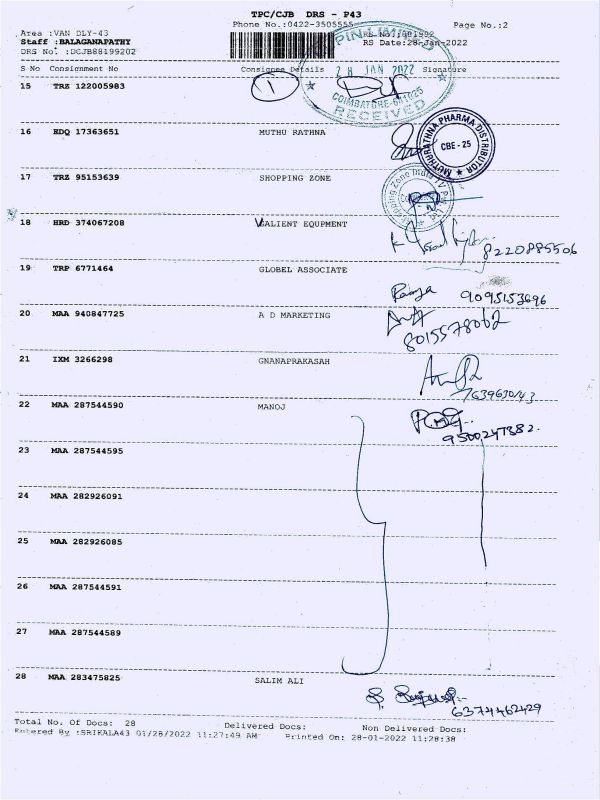 TPC/CJB DRS - P43
Phone No.:0422-3505555 Page No.:2
Area :VAN DLY-43
Staff :BALAGANAPATHY RS Date:28-Jan-2022
DRS No. :DCJB88199202
S No Consignment No Consignee Details Signature
28 JAN 2022
15 TRZ 122005983 1
COIMBATORE-641025
RECEIVED
16 EDQ 17363651 MUTHU RATHNA
MUTHURATHNA PHARMA DISTRIBUTOR
CBE - 25
17 TRZ 95153639 SHOPPING ZONE
Shopping Zone India TV
18 HRD 374067208 SALIENT EQUPMENT
8220885506
19 TRP 6771464 GLOBEL ASSOCIATE
Ramya 9095153696
20 MAA 940847725 A D MARKETING
8015578062
21 IXM 3266298 GNANAPRAKASAH
7639630143
22 MAA 287544590 MANOJ
9500247382.
23 MAA 287544595
24 MAA 282926091
25 MAA 282926085
26 MAA 287544591
27 MAA 287544589
28 MAA 283475825 SALIM ALI
6374462429
Total No. Of Docs: 28 Delivered Docs: Non Delivered Docs:
Entered By :SRIKALA43 01/28/2022 11:27:49 AM Printed On: 28-01-2022 11:28:38